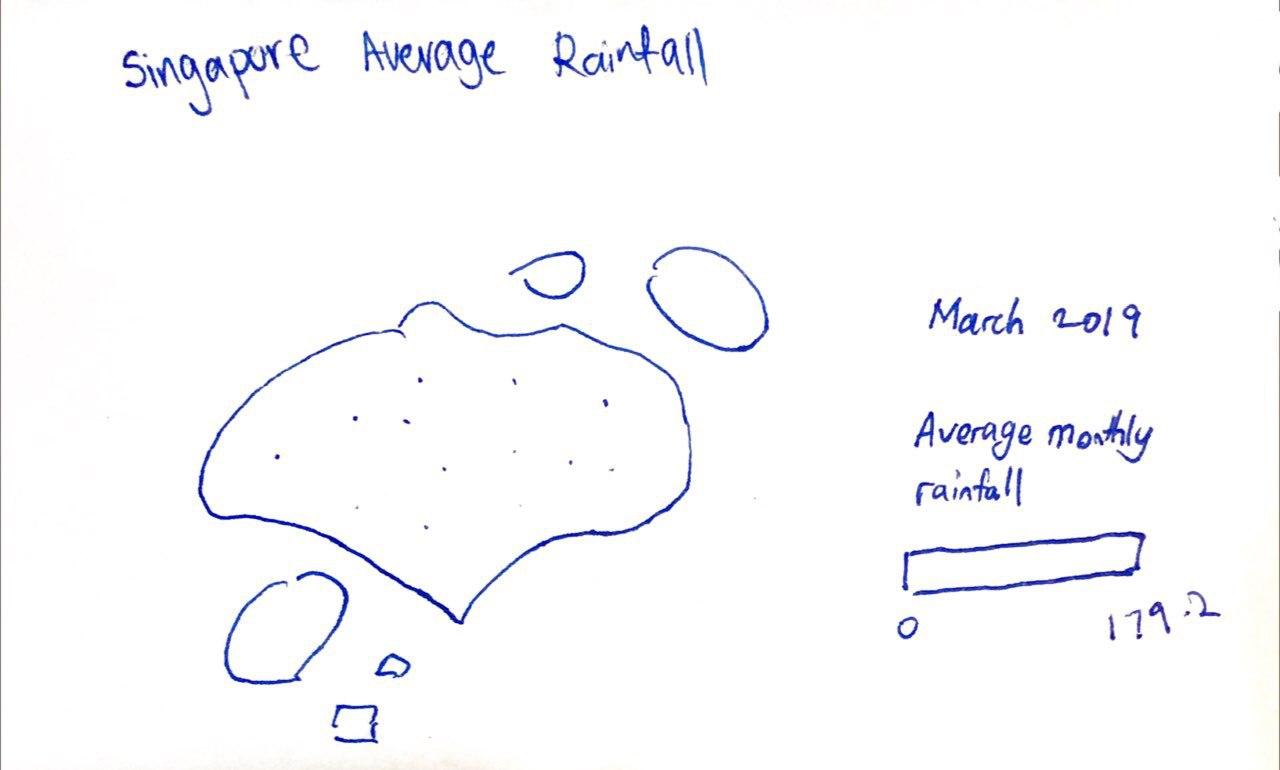 Singapore Average Rainfall
March 2019
Average monthly
rainfall
0
179.2